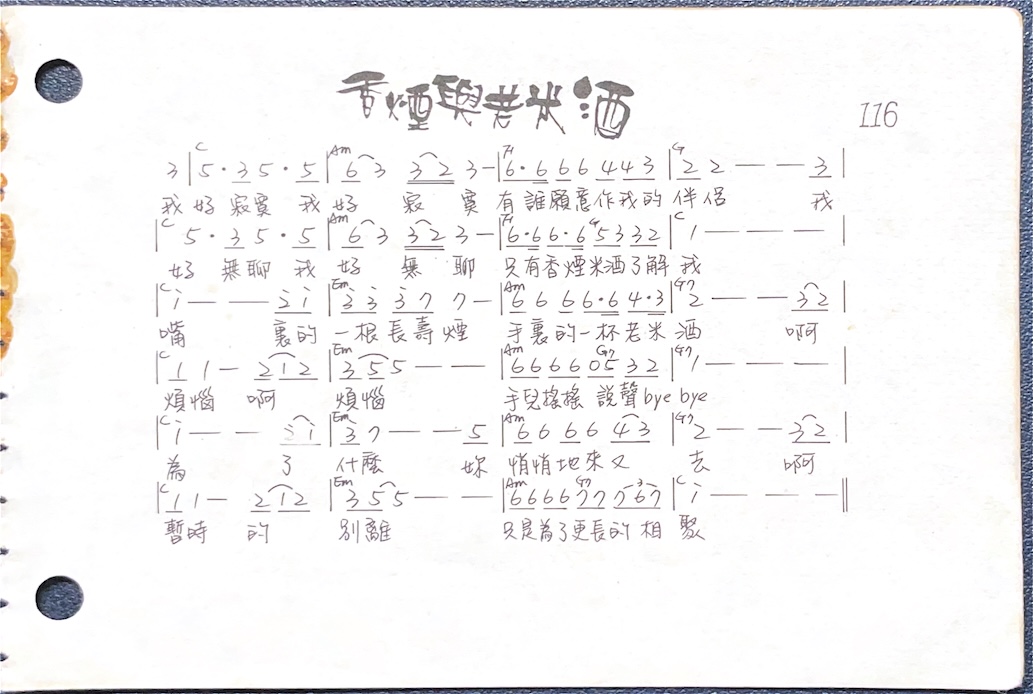 香煙與老米酒
116
3 | C 5 · 3 5 · 5 | Am 6 3 3 2 3 — | F 6 · 6 6 6 4 4 3 | G 2 2 — — 3 |
我 好 寂寞 我 好 寂 寞 有 誰願意作我的 伴 侶 我
| C 5 · 3 5 · 5 | Am 6 3 3 2 3 — | F 6 · 6 6 · 6 G 5 3 3 2 | C 1 — — — |
好 無聊 我 好 無 聊 只有香煙米酒了解 我
| C i — — 2 i | Em 3 3 3 7 7 — | Am 6 6 6 6 · 6 4 · 3 | G7 2 — — 3 2 |
嘴 裏的 一根長壽煙 手裏的一杯老米 酒 啊
| C 1 1 — 2 1 2 | Em 3 5 5 — — | Am 6 6 6 6 G7 0 5 3 2 | G7 1 — — — |
煩惱 啊 煩惱 手兒搖搖 說聲 bye bye
| C i — — 3 i | Em 3 7 — — 5 | Am 6 6 6 6 4 3 | G7 2 — — 3 2 |
為 了 什麼 妳 悄悄地來又 去 啊
| C 1 1 — 2 1 2 | Em 3 5 5 — — | Am 6 6 6 6 G7 7 7 7 6 7 | C i — — — ||
暫時 的 別離 只是為了更長的 相 聚